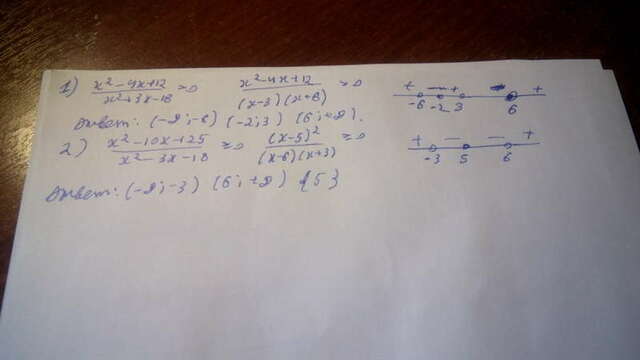 1) x²-4x+12/x²+3x-18 ≥0 x²-4x+12/(x-3)(x+6) ≥0 + - + - +
-6 -2 3 6
Ответ: (-∞;-6) (-2;3) (6;+∞).
2) x²-10x+25/x²-3x-18 ≥0 (x-5)²/(x-6)(x+3) ≥0 + - - +
-3 5 6
Ответ: (-∞;-3) (6;+∞) {5}